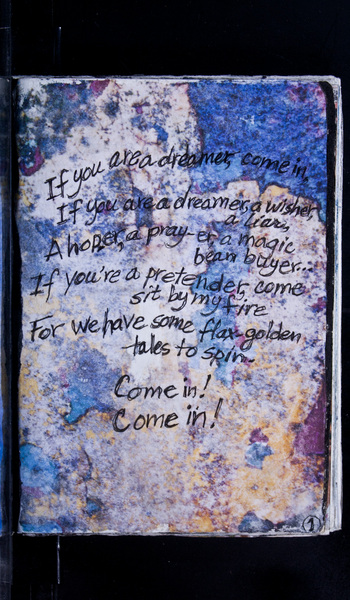 If you are a dreamer, come in.
If you are a dreamer, a wisher,
a liar,
A hoper, a pray-er, a magic
bean buyer...
If you're a pretender, come
sit by my fire
For we have some flax golden
tales to spin.
Come in!
Come in!
1